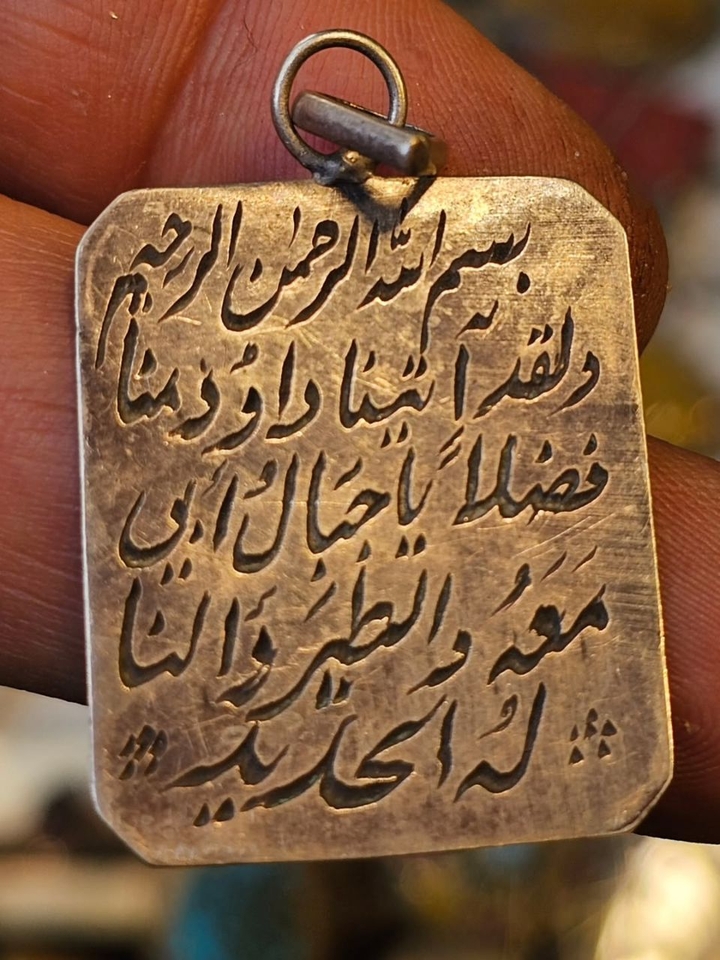 بسم الله الرحمن الرحيم
ولقد آتينا داوُد منا
فضلاً يا جبالُ أوبي
مَعَهُ والطيرَ وَألنا
لهُ الحَديد